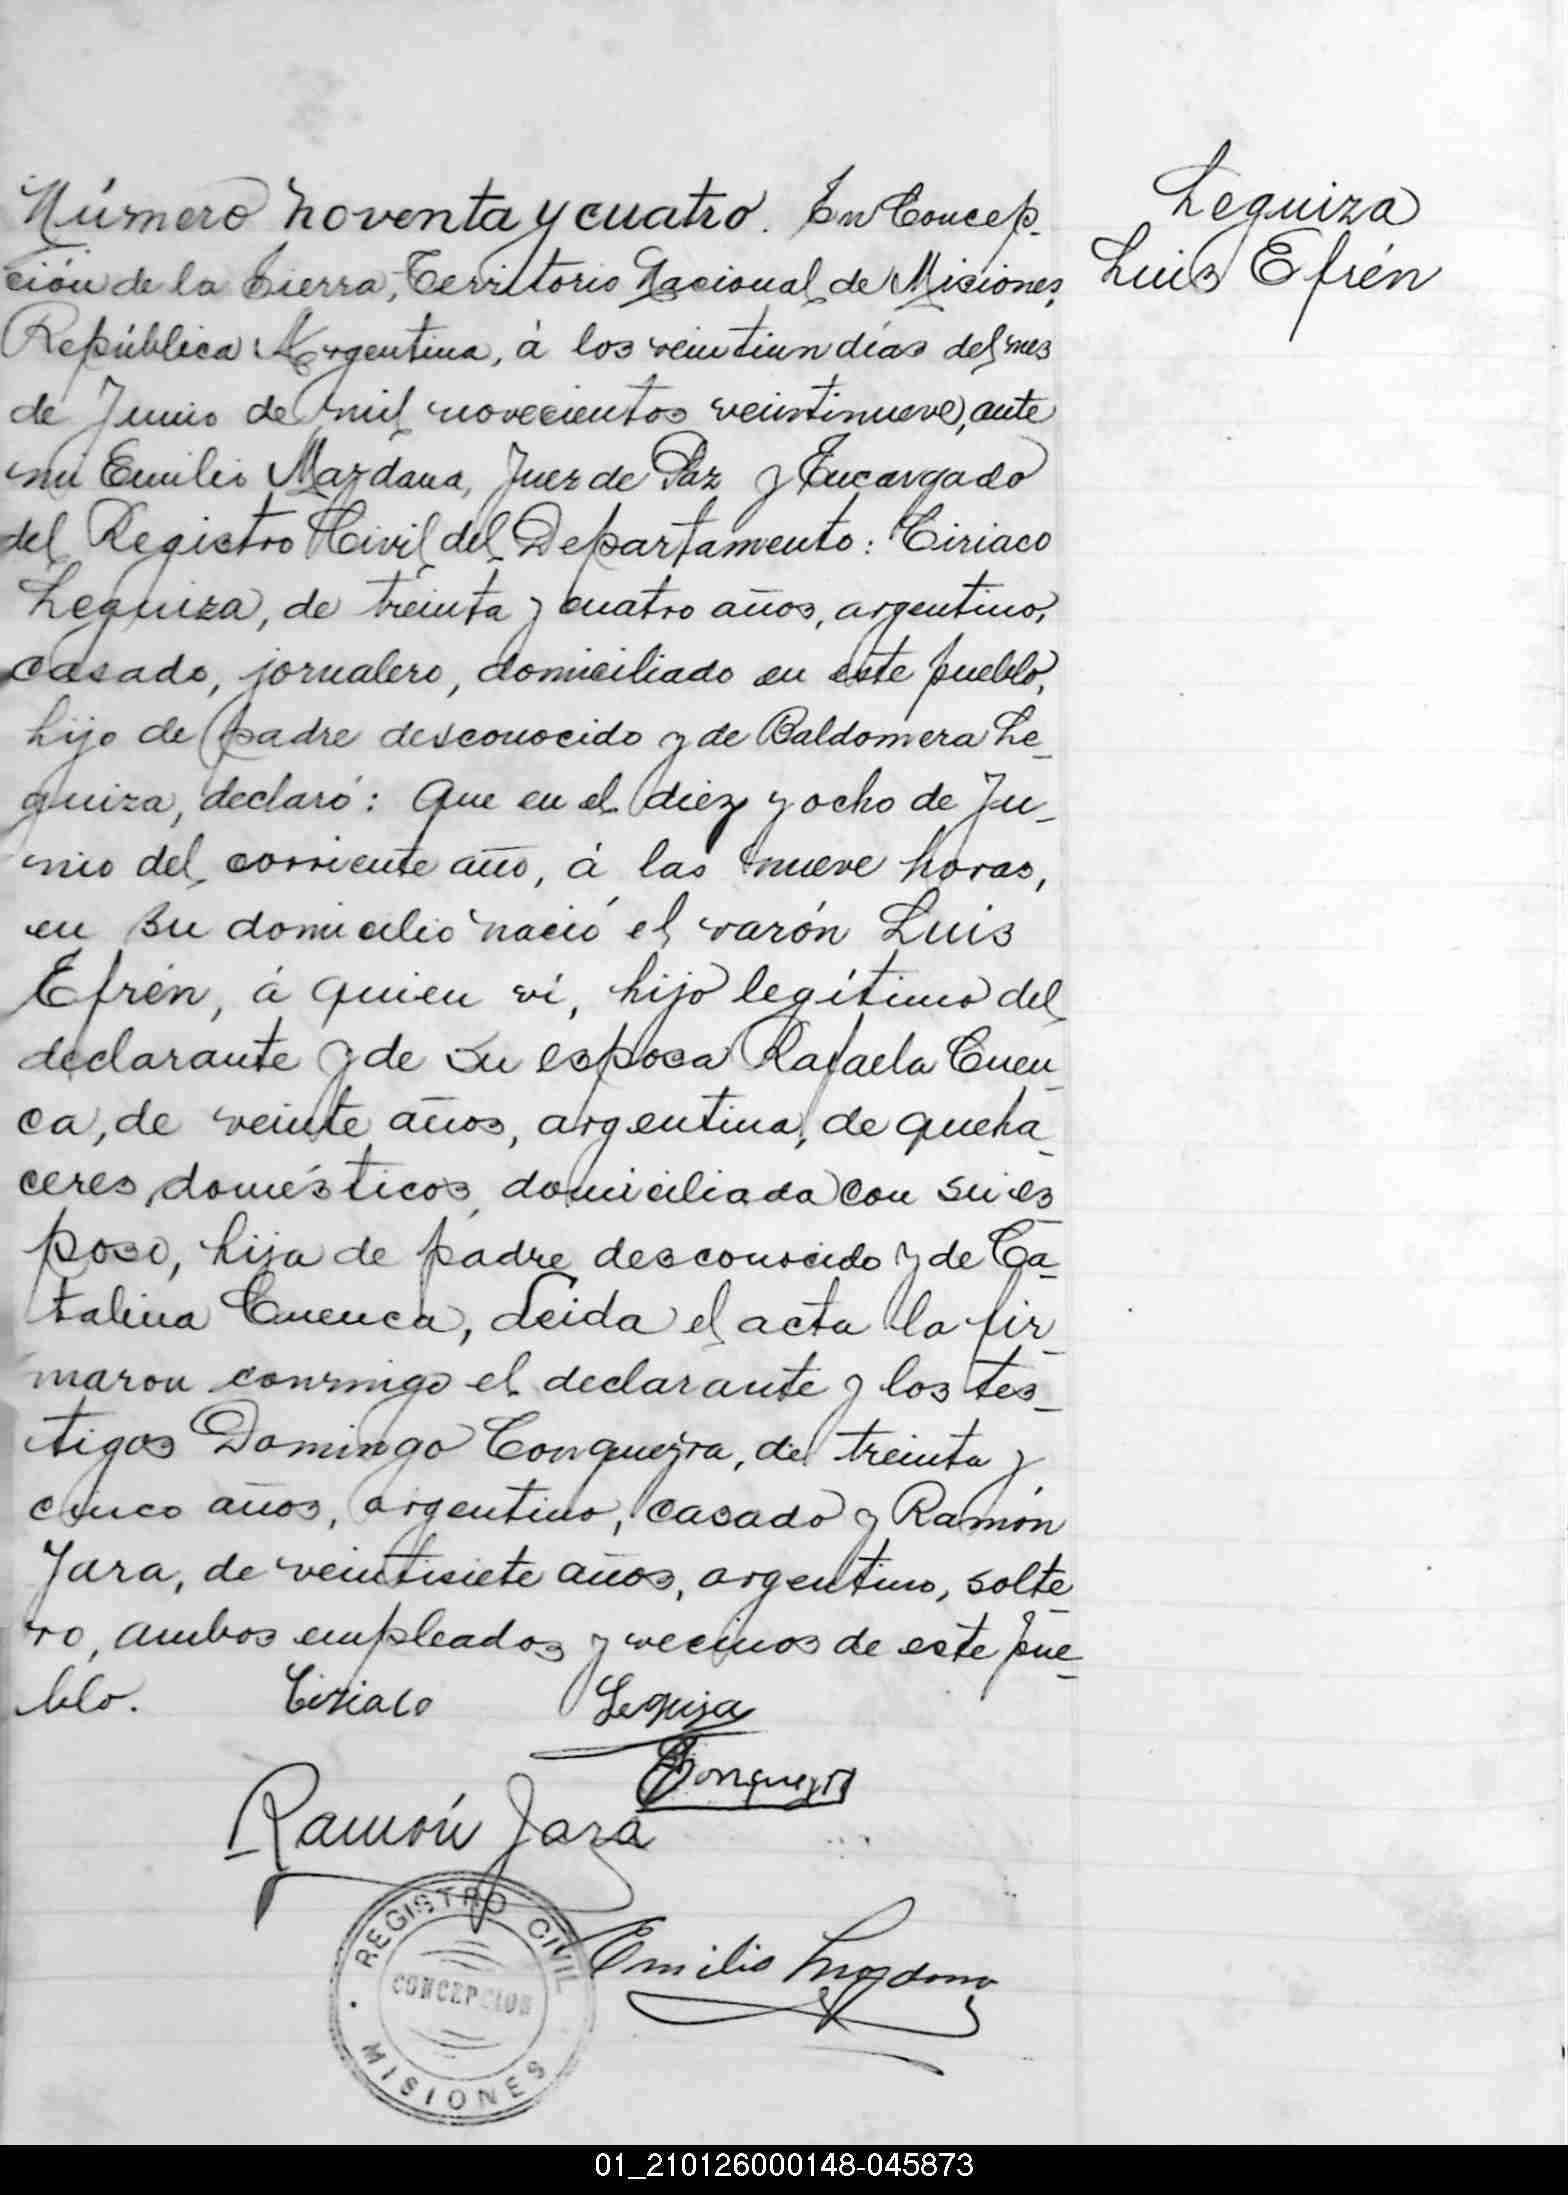 Número noventa y cuatro. En Concep-
ción de la Sierra, Territorio Nacional de Misiones,
República Argentina, á los veintiun días del mes
de Junio de mil novecientos veintinueve, ante
mi Emilio Mazdana, Juez de Paz y Encargado
del Registro Civil del Departamento: Ciriaco
Leguiza, de treinta y cuatro años, argentino,
casado, jornalero, domiciliado en este pueblo,
hijo de padre desconocido y de Baldomera Le-
guiza, declaró: Que en el diez y ocho de Ju-
nio del corriente año, á las nueve horas,
en su domicilio nació el varón Luis
Efrén, á quien ví, hijo legítimo del
declarante y de su esposa Rafaela Cuen-
ca, de veinte años, argentina, de queha-
ceres domésticos, domiciliada con su es-
poso, hija de padre desconocido y de Ca-
talina Cuenca, Leida el acta la fir-
maron conmigo el declarante y los tes-
tigos Domingo Conqueyra, de treinta y
cinco años, argentino, casado y Ramón
Jara, de veintisiete años, argentino, solte-
ro, ambos empleados y vecinos de este pue-
blo. Ciriaco Leguiza
Ramón Jara
Emilio
REGISTRO CIVIL
CONCEPCION
MISIONES
Leguiza
Luis Efrén
01_210126000148-045873